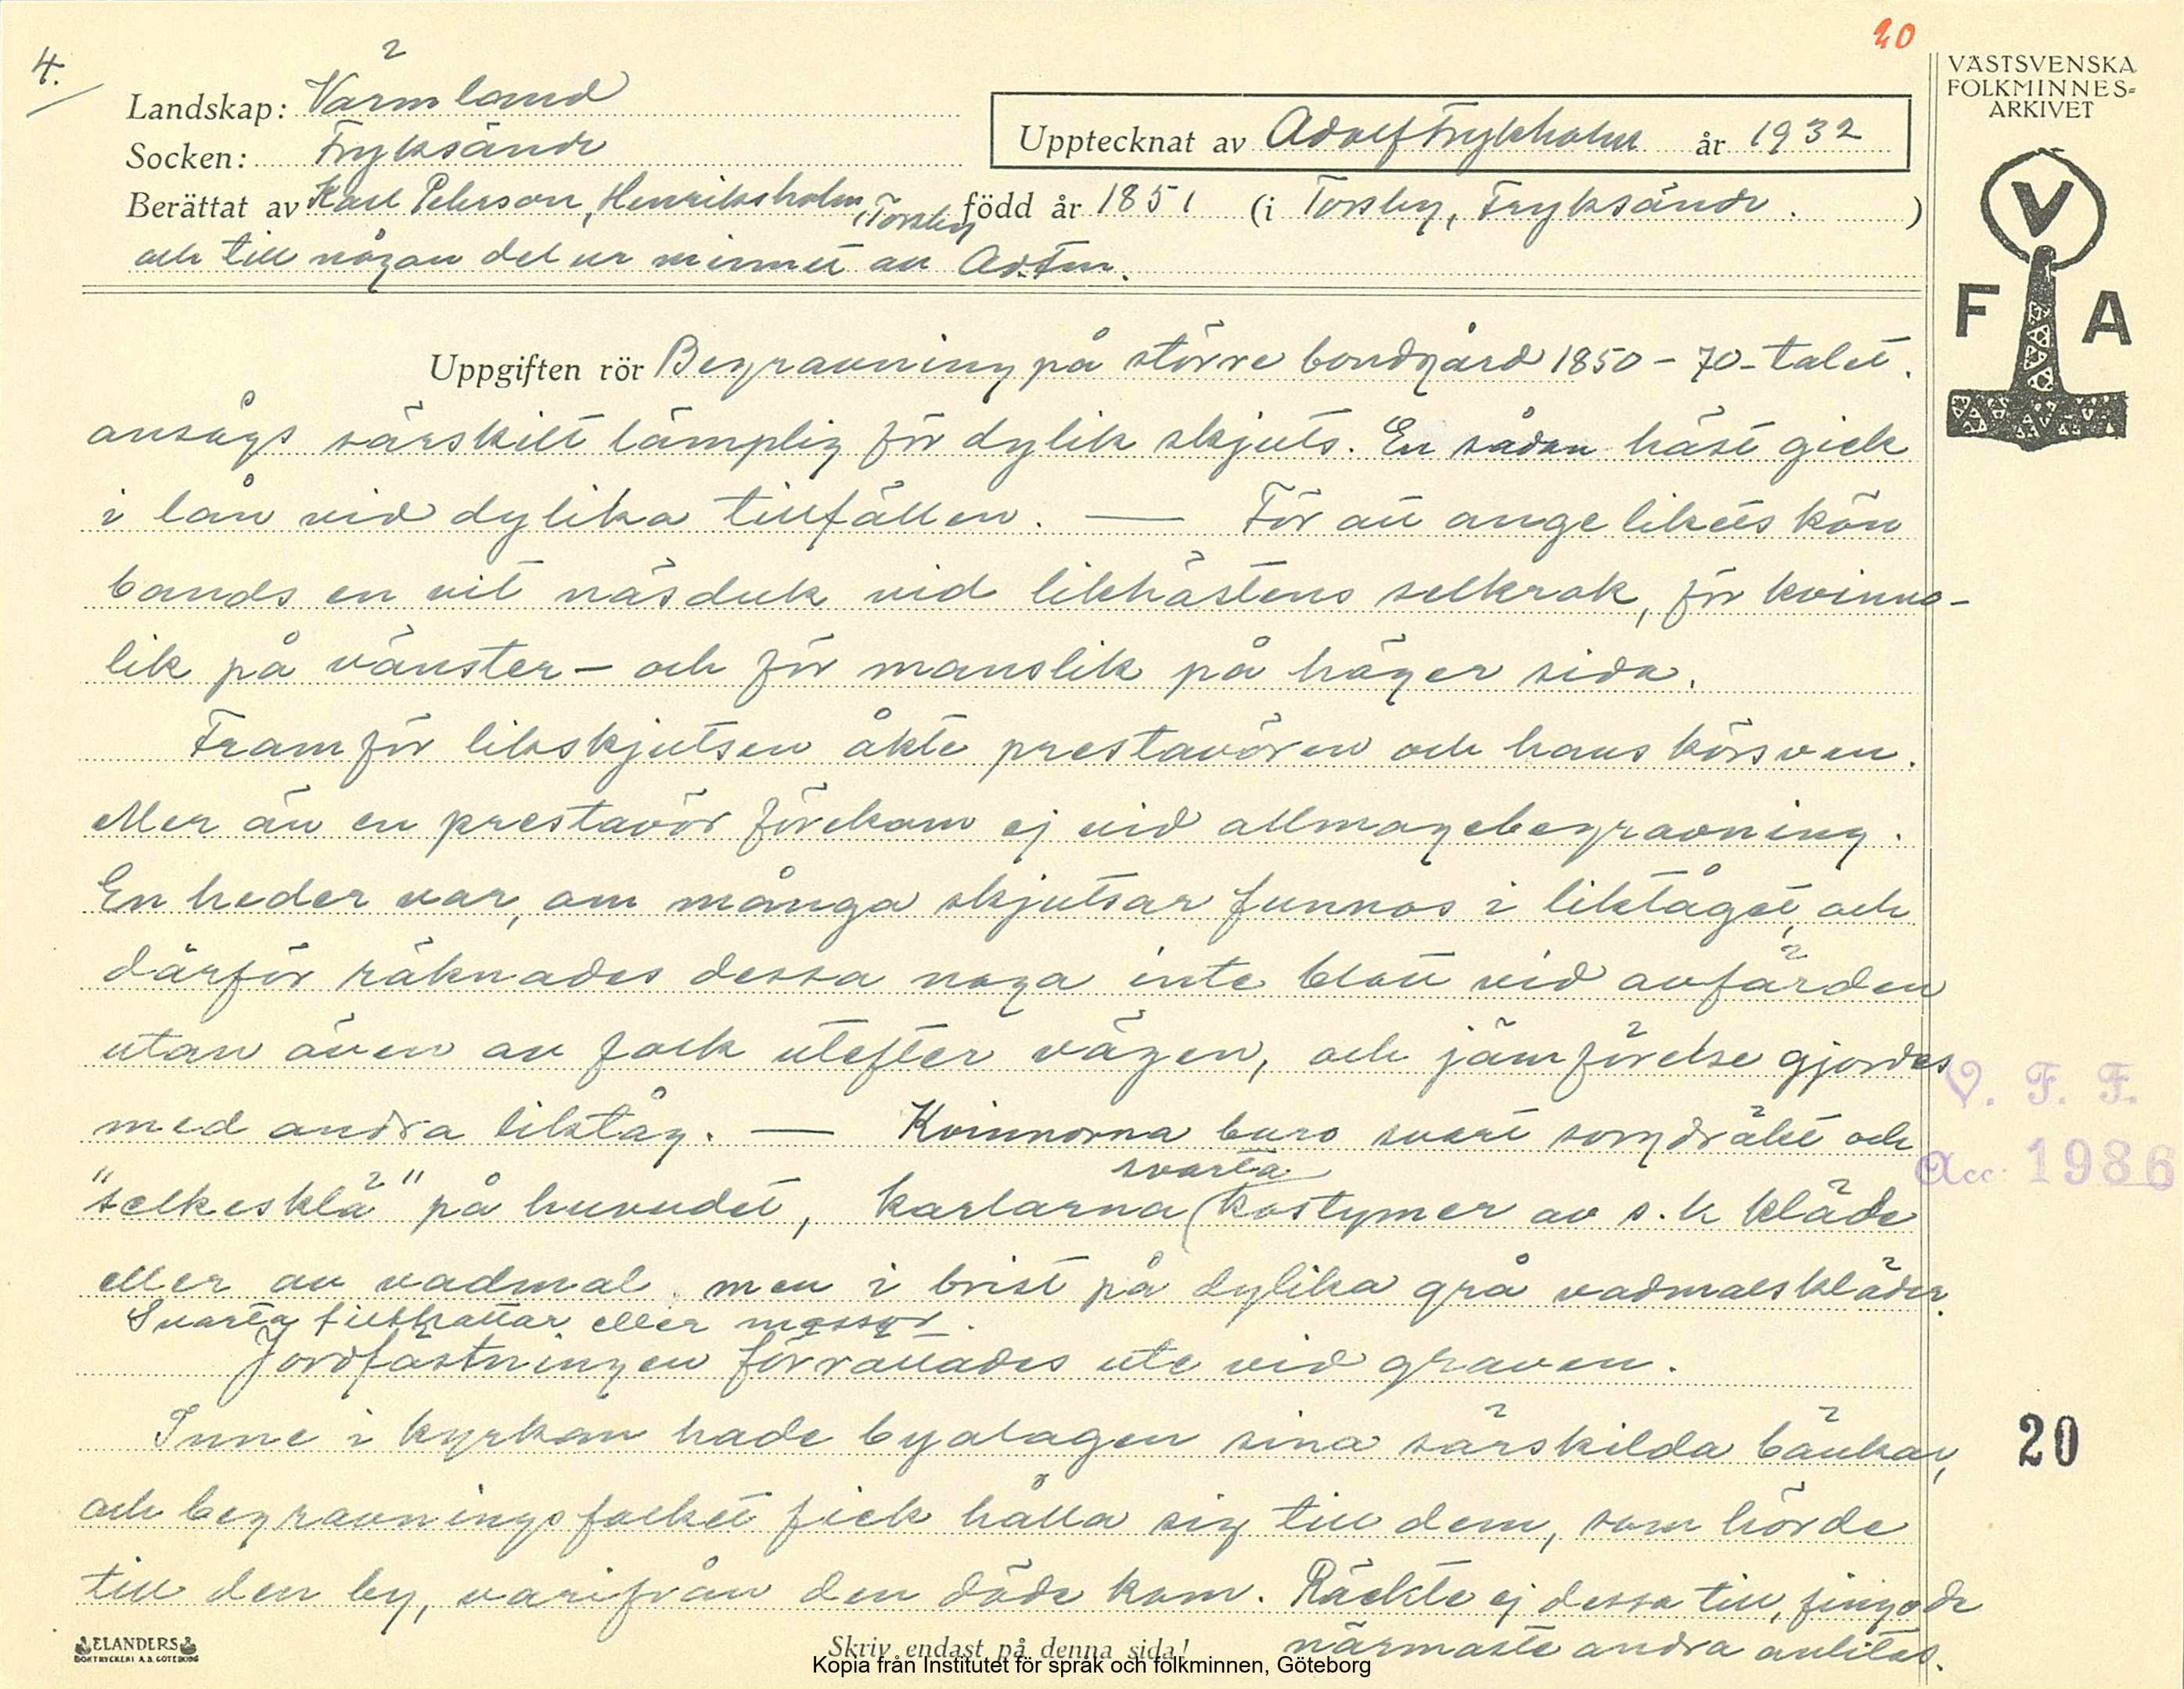 4.
20
Landskap: Värmland
Socken: Fryksände
Upptecknat av Adolf Frykholm år 1932
Berättat av Karl Peterson, Henriksholm, Torsby född år 1851 (i Torsby, Fryksände. )
och till någon del ur minnet av Ad. Fm.
VÄSTSVENSKA
FOLKMINNES=
ARKIVET
V
F A
Uppgiften rör Begravning på större bondgård 1850-70-talet.
ansågs särskilt lämplig för dylik skjuts. En sådan häst gick
i lån vid dylika tillfällen. — För att ange likets kön
bands en vit näsduk vid likhästens selkrok, för kvinno-
lik på vänster- och för manslik på höger sida.
Framför likskjutsen åkte prestavören och hans körsven.
Mer än en prestavör förekom ej vid allmogebegravning.
En heder var, om många skjutsar funnos i liktåget, och
därför räknades dessa noga inte blott vid avfärden
utan även av folk utefter vägen, och jämförelse gjordes
med andra liktåg. — Kvinnorna buro svart sorgdräkt och
"selkesklä" på huvudet, karlarna (svarta kostymer av s.k kläde
eller av vadmal, men i brist på dylika grå vadmalskläder.
Svarta filthattar eller mössor.
Jordfästningen förrättades ute vid graven.
Inne i kyrkan hade byalagen sina särskilda bänkar,
och begravningsfolket fick hålla sig till dem, som hörde
till den by, varifrån den döde kom. Räckte ej dessa till, fingo de
närmaste andra anlitas.
V. F. F.
Acc. 1986
20
ELANDERS
BOKTRYCKERI A.B. GÖTEBORG
Skriv endast på denna sida!
Kopia från Institutet för språk och folkminnen, Göteborg